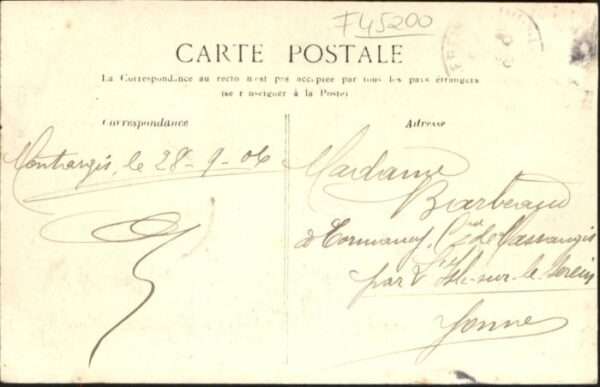 F45200
CARTE POSTALE
La Correspondance au recto n'est pas acceptée par tous les pays étrangers
(se renseigner à la Poste)
Correspondance
Adresse
Montargis, le 28-9-06
Madame
Barbeaud
à Cormancy, Cne de Massangis
par l'Isle-sur-le-Serein
Yonne